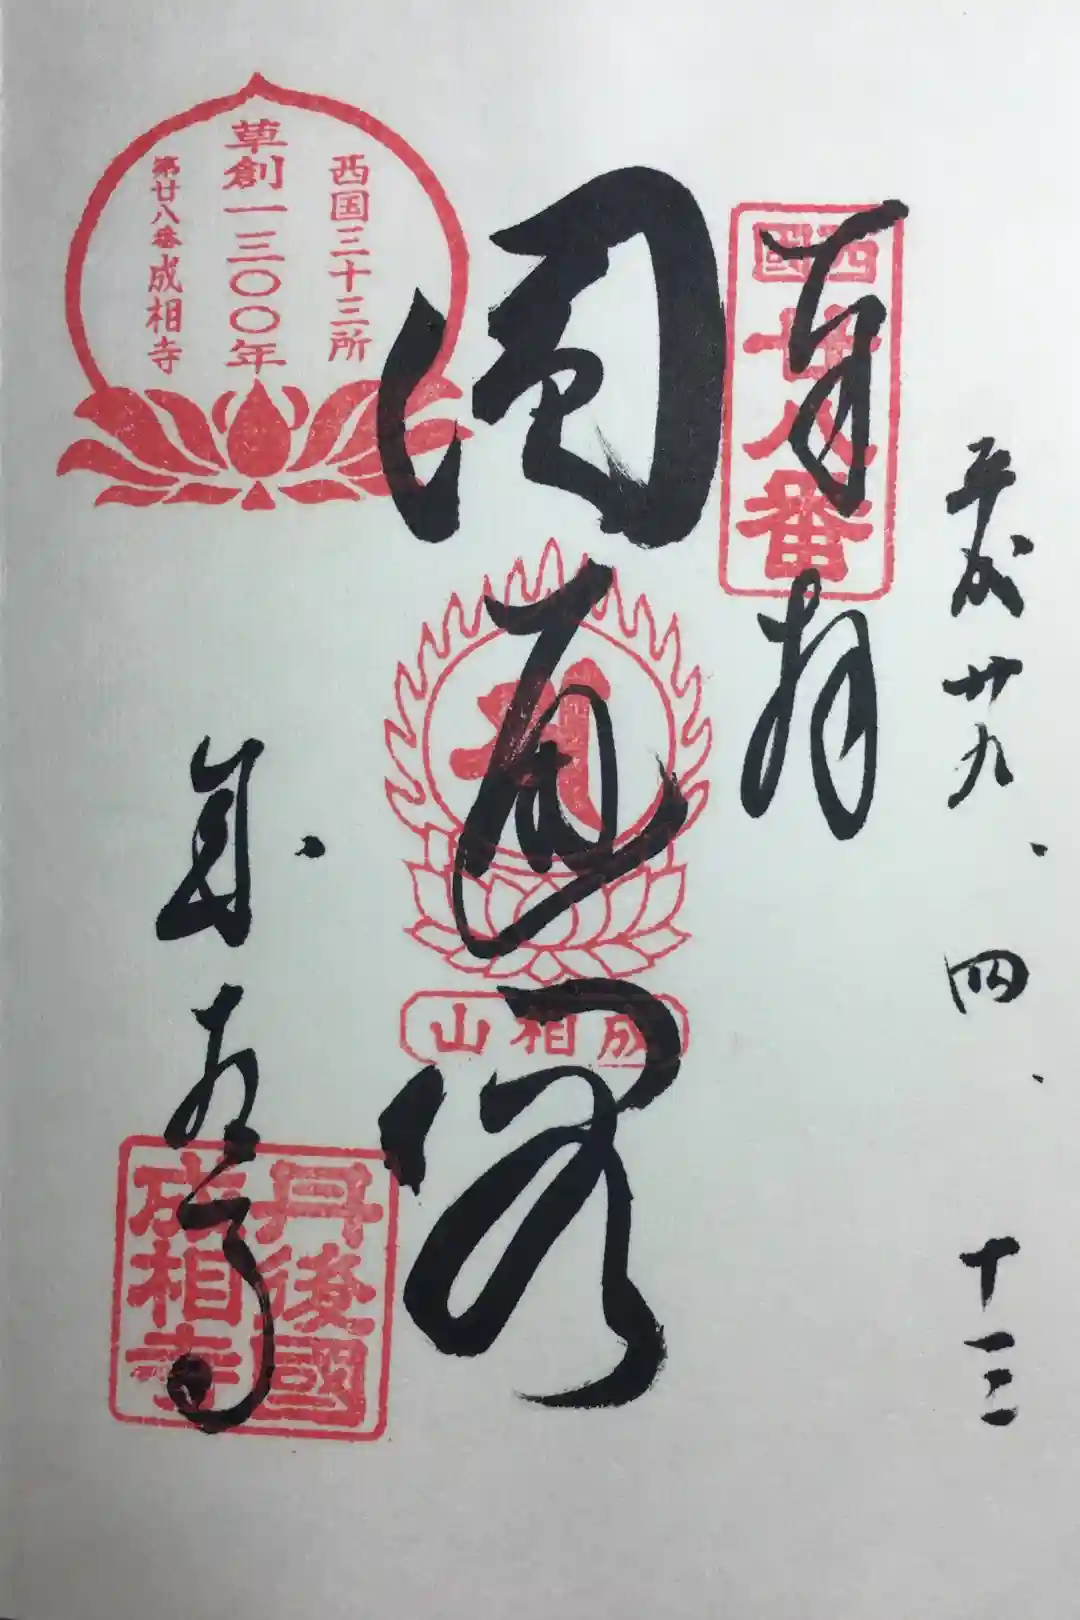 平成廿九、四、十三
奉拝
西國
廿八番
圓通閣
成相山
西国三十三所
草創一三〇〇年
第廿八番成相寺
成相寺
丹後國
成相寺